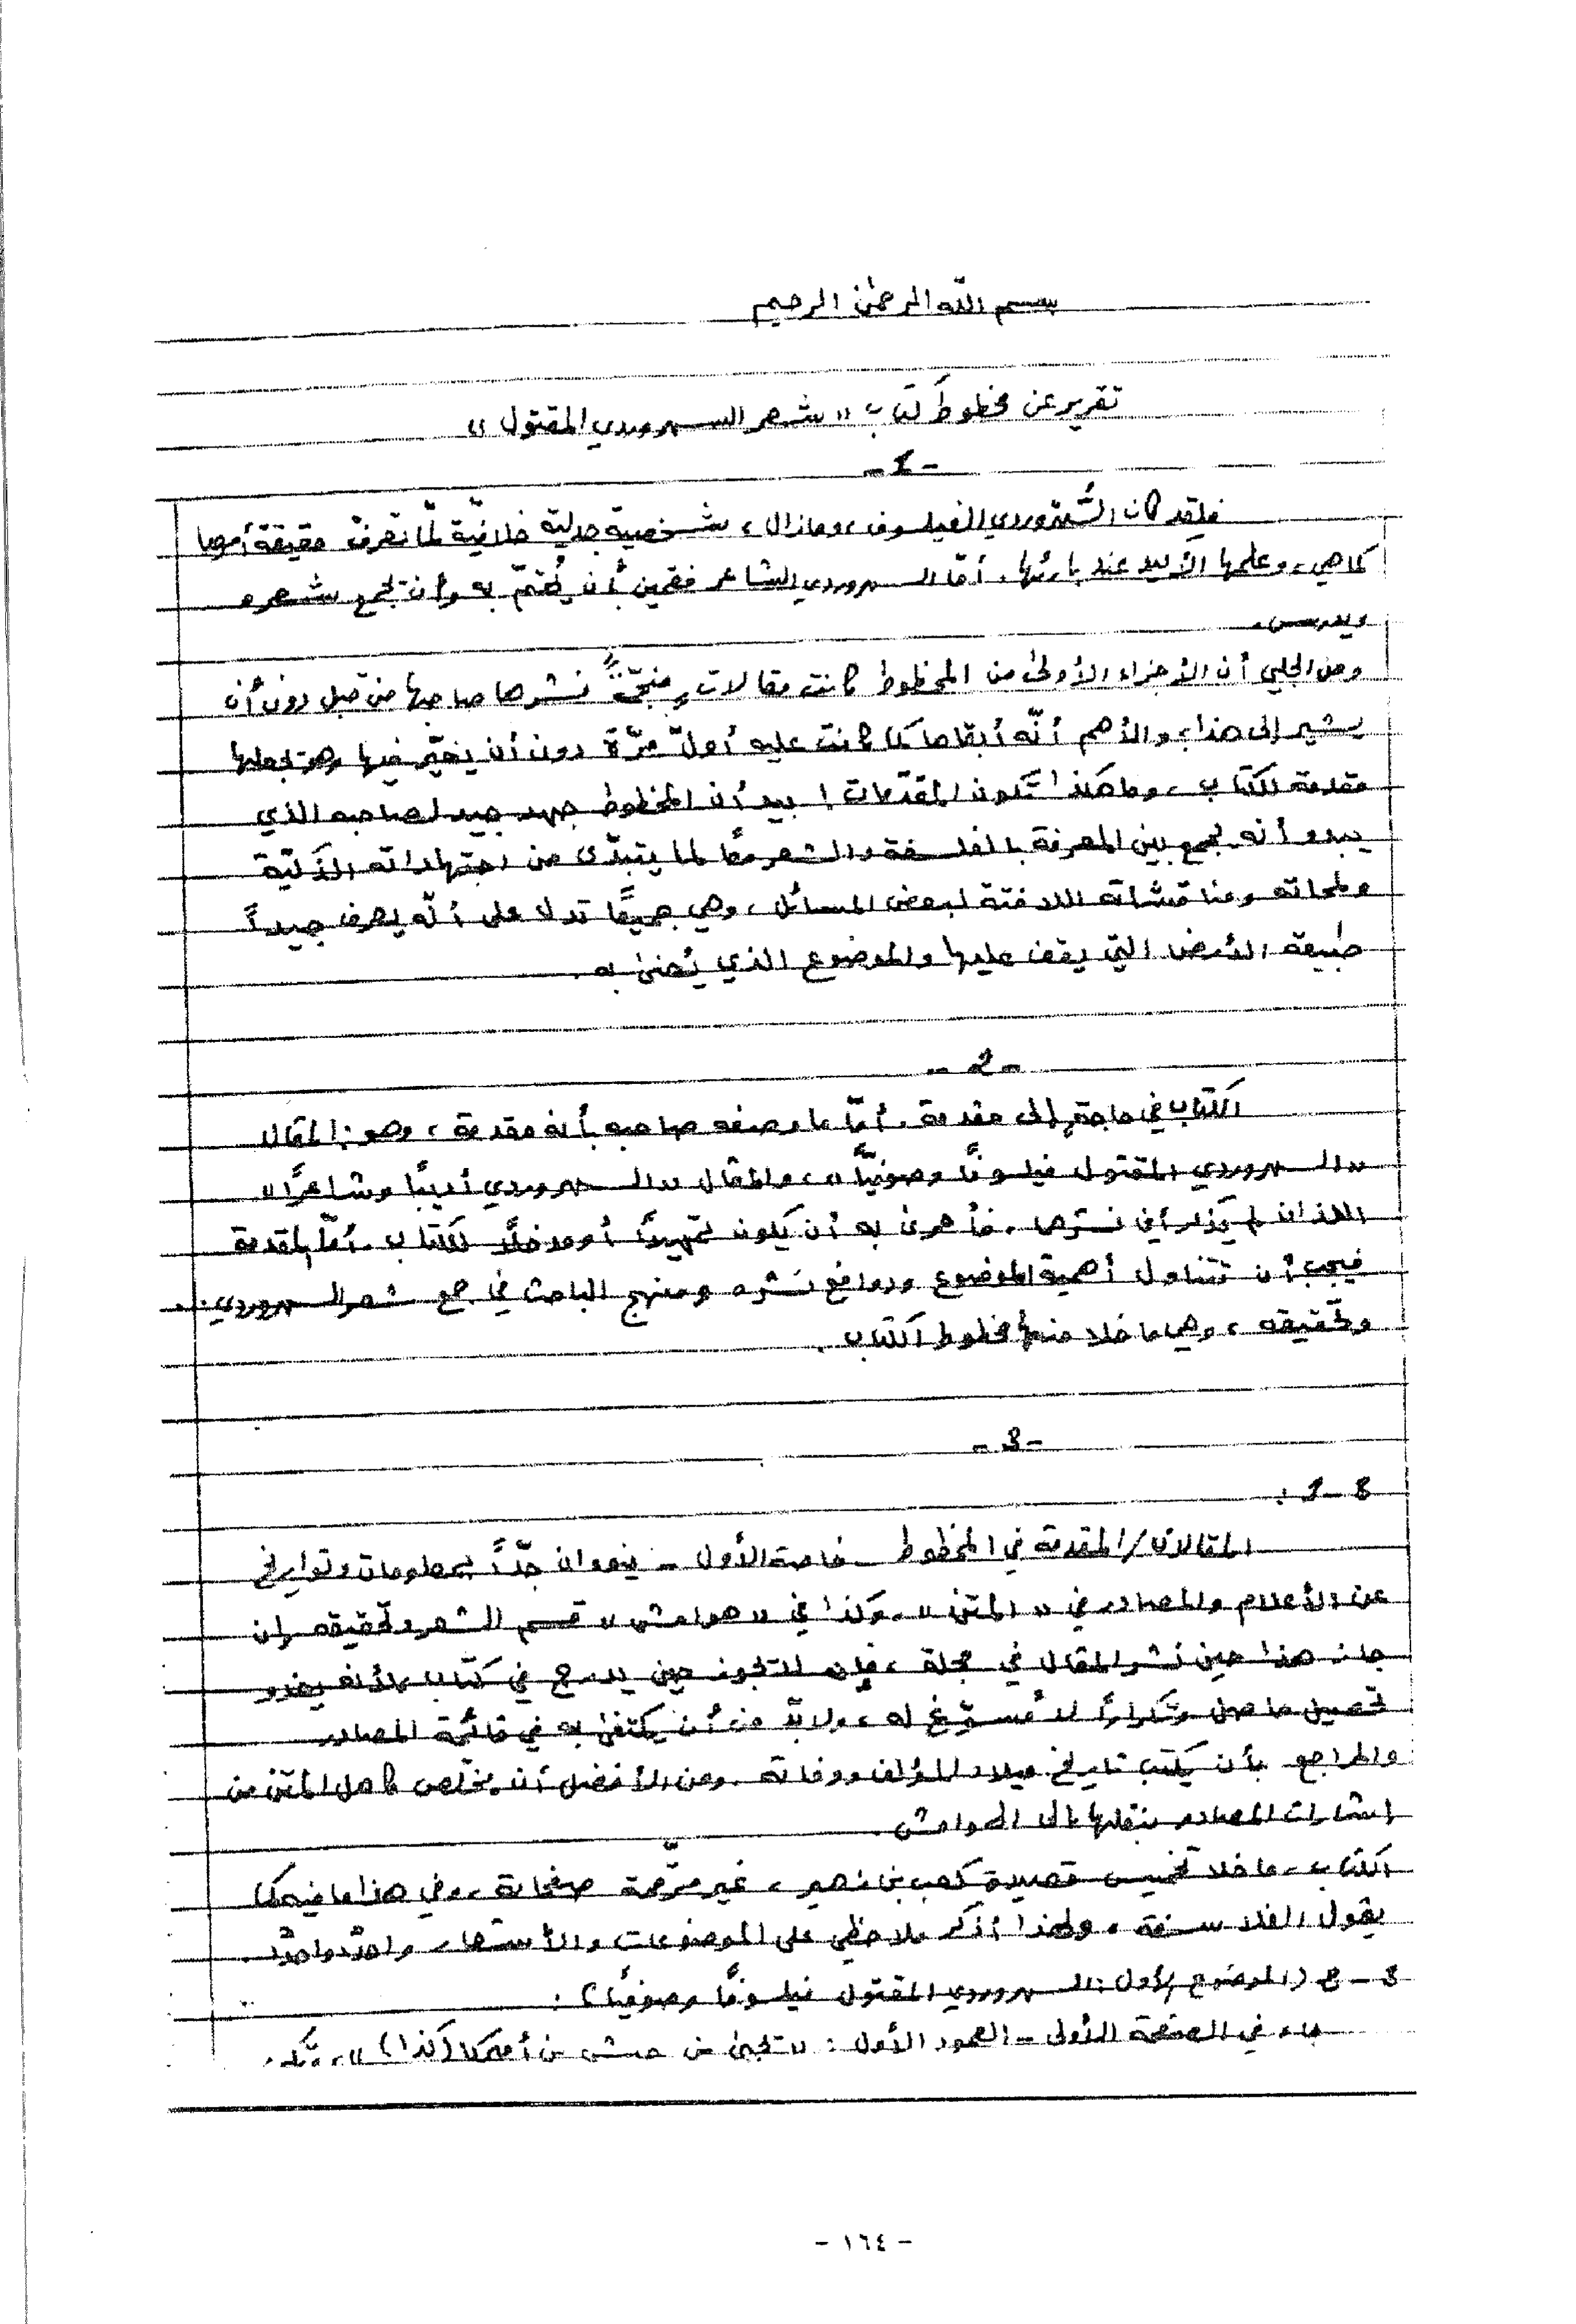 بسم الله الرحمن الرحيم
تقرير عن مخطوط كتاب «شعر السهروردي المقتول»
- 1 -
فلقد كان السُّهْرَوردي الفيلسوف، ومازال، شخصية جدلية خلافيّة لمّا تعرف حقيقة أمرها
كما هي، وعلمها الأكيد عند بارئها. أمّا السهروردي الشاعر فقمين بأن يُهتمّ به وأن يجمع شعره
ويدرس.
ومن الجلي أن الأجزاء الأولى من المخطوط كانت مقالات منجّمةً نشرها صاحبها من قبل دون أن
يشير إلى هذا، والأهم أنّه أبقاها كما كانت عليه أولّ مرّة دون أن يغيّر فيها وهو يجعلها
مقدمة للكتاب، وما هكذا تكون المقدّمات! بيد أن المخطوط جهد جيد لصاحبه الذي
يبدو أنه يجمع بين المعرفة بالفلسفة والشعر معًا لما يتبدّى من اجتهاداته الذكيّة
ولمحاته ومناقشاته اللافتة لبعض المسائل، وهي جميعًا تدل على أنّه يعرف جيداً
طبيعة الأرض التي يقف عليها والموضوع الذي يُعنى به.
- 2 -
الكتاب في حاجةٍ إلى مقدمة. أمّا ما وصفه صاحبه بأنه مقدمة، وهو: المقال
«السهروردي المقتول فيلسوفًا وصوفيًّا»، والمقال «السهروردي أديبًا وشاعرًا»
اللذان لم يذكر أين نشرها. فأحرى به أن يكون تمهيدًا أو مدخلًا للكتاب. أمّا المقدمة
فيجب أن تتناول أهمية الموضوع ودوافع نشره ومنهج الباحث في جمع شعر السهروردي..
وتحقيقه، وهي ما خلا منها مخطوط الكتاب.
- 3 -
3 - 1 :
المقالان/المقدمة في المخطوط - خاصة الأول - ينوءان جدّاً بمعلومات وتواريخ
عن الأعلام والمصادر في «المتن». وكذا في «هوامش» قسم الشعر وتحقيقه. إن
جاز هذا حين نشر المقال في مجلة، فإنه لا يجوز حين يدرج في كتاب لأنه يغدو
تحصيل حاصل وتكراراً لا مُسوّغ له، ولابدّ من أن يكتفى به في قائمة المصادر
والمراجع بأن يكتب تاريخ ميلاد المؤلف ووفاته. ومن الأفضل أن يخلّص كاهل المتن من
إشارات المصادر بنقلها إلى الهوامش.
الكتاب، ما خلا تخميس قصيدة كعب بن زهير، غير مرقّمة صفحاته، وفي هذا ما فيه كما
يقول الفلاسفة، ولهذا أذكر ملاحظي على الموضوعات والأشعار واحدًا واحدًا.
3 - 2 (الموضوع الأول: السهروردي المقتول فيلسوفًا وصوفيًا) :
جاء في الصفحة الأولى - العمود الأول: «تجيئ من حبش بن أميركا (كذا)»،
- ١٦٤ -